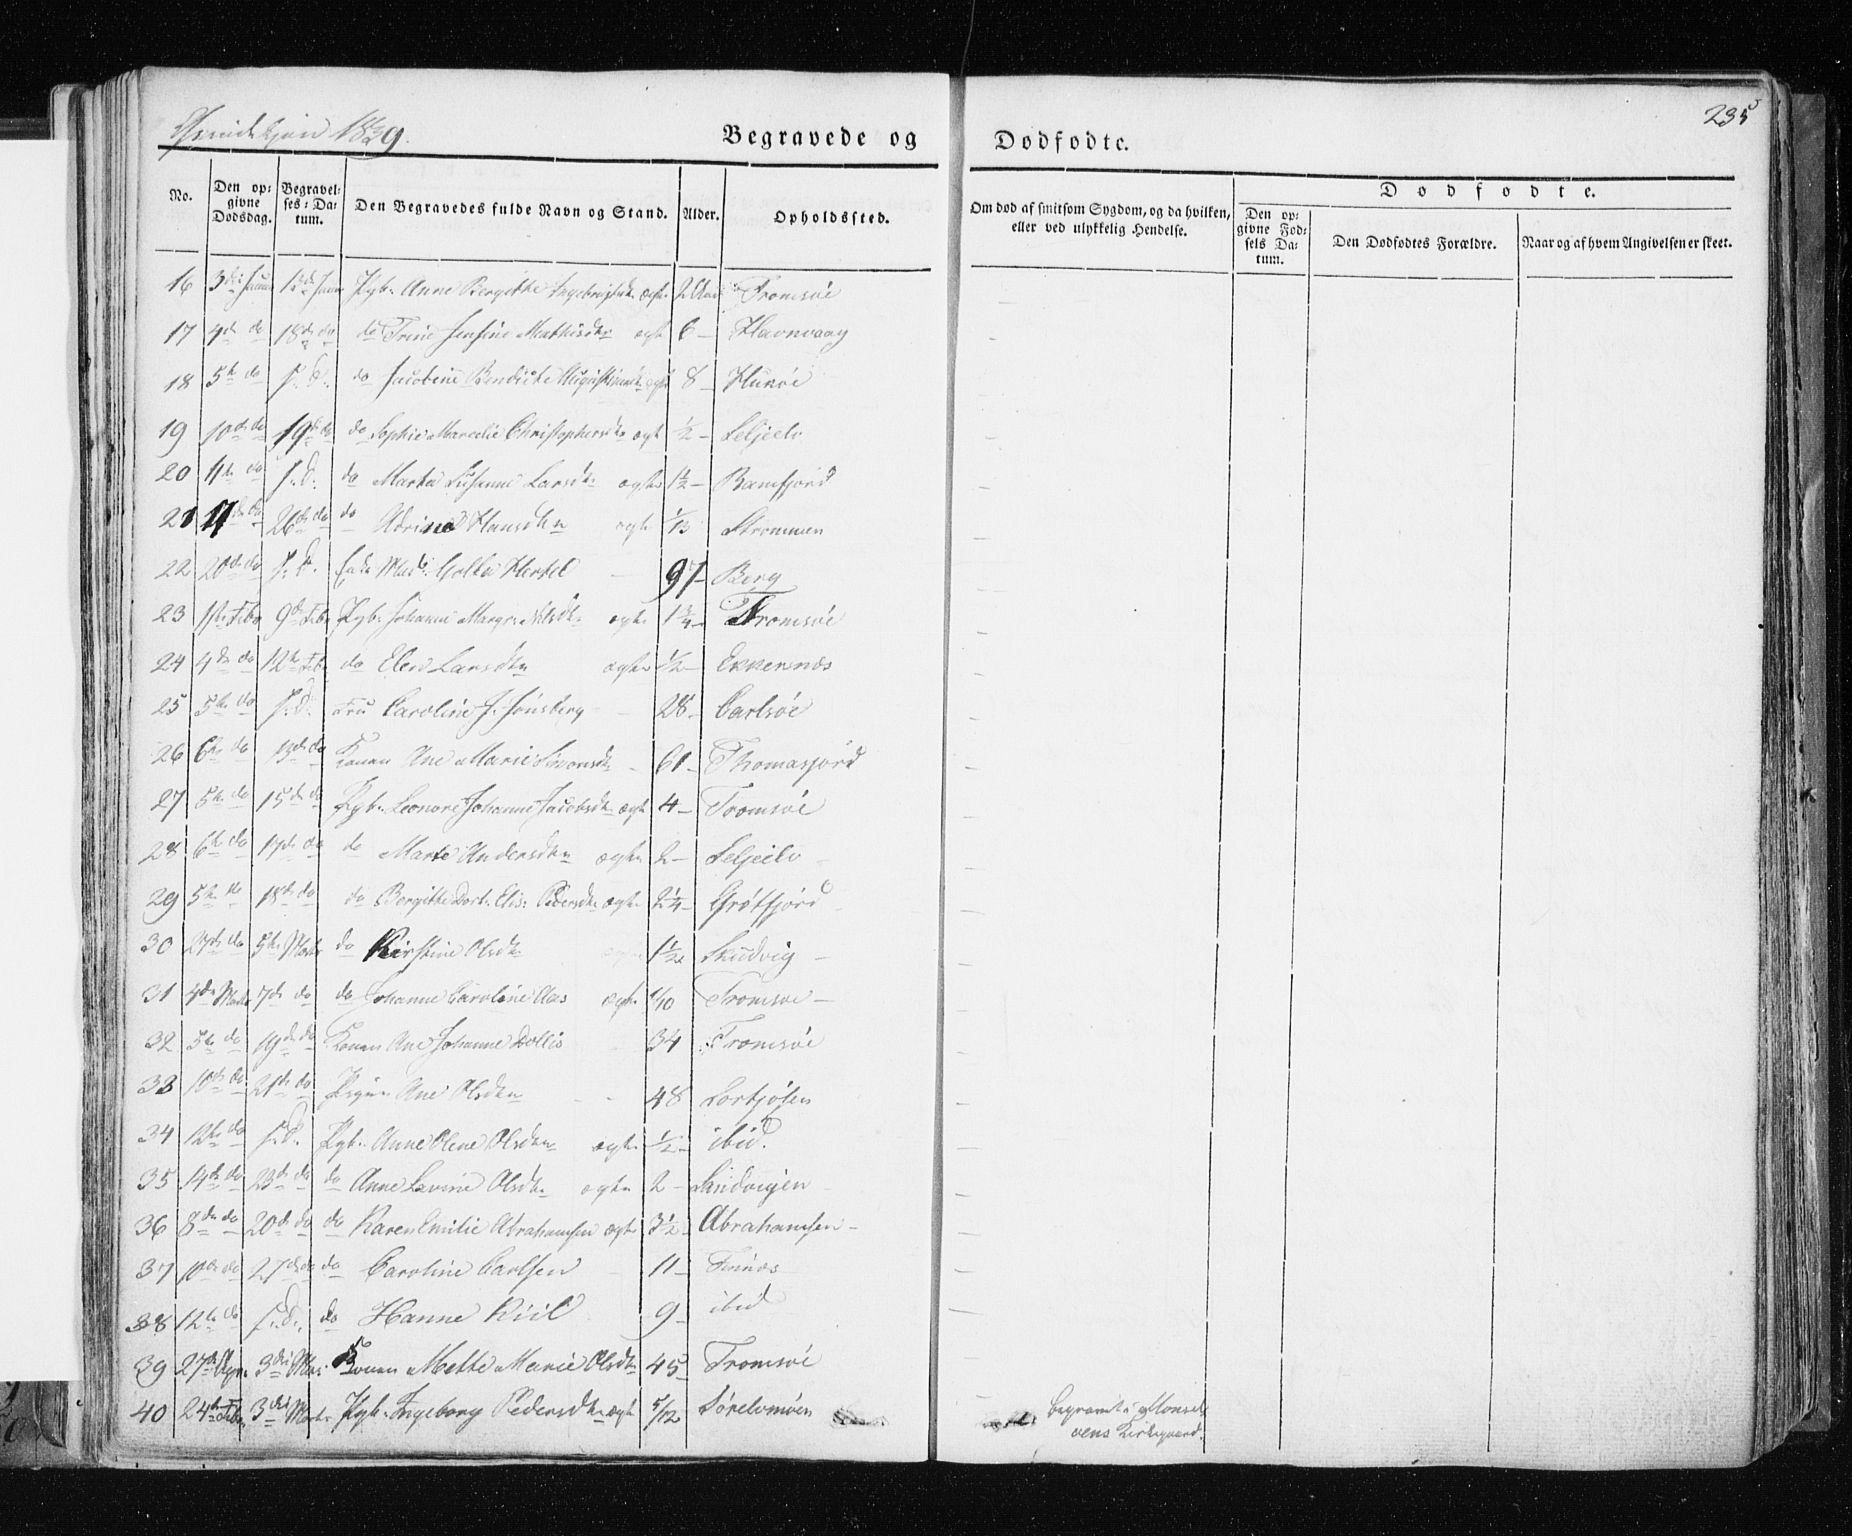 Qvindekjøn 1839.
Begravede og
Dødfødte.
235
No.
Den opgivne Dødsdag.
Begravelses-Datum.
Den Begravedes fulde Navn og Stand.
Alder.
Opholdssted.
Om død af smitsom Sygdom, og da hvilken, eller ved ulykkelig Hendelse.
Dødfødte.
Den opgivne Fødsels Datum.
Den Dødfødtes Forældre.
Naar og af hvem Angivelsen er skeet.
16 3die Pgb. Anne Bergithe ægte 2 Tromsøe
17 4de do 18de do do Trine Jensine Mathisdtr ægte 6 - Havnvaag
18 5te do s. d. do Jacobine Bendicte ægte 8 -
19 10de do 19de do do Sophie Marcelie Christophersdtr ægte ½ - Seljeelv
20 11te do s. d. do Marta Susanne Larsdtr ægte 1½ - Ramfjord
21 17de do 26de do do Adriane Hansdtr ægte 1/13 Strømmen
22 20de do s. d. Enke Mad. Hertel 97 - Berg
23 1ste Febr 9de Febr Pgb. Johanne Margr. Nilsdtr ægte 1¾ - Tromsøe
24 4de do 12te Feb. do Elen Larsdtr ægte ½ - Ekkernæs
25 5te do s. d. Fru Caroline J. Jonsberg 28 - Carlsøe
26 6te do 13de do Konen Ane Marie Simonsdtr - 61 - Thomasjord
27 5te do 15de do Pgb. Leonore Johanne Jacobsdtr ægte 4 - Tromsøe
28 6te do 17de do do Marte Andersdtr ægte 2 - Seljeelv
29 5te do 18de do do Bergitte Dort. Elis: Pedersdtr ægte 2¼ - Grøtfjord
30 27de do 5te Marts do Kirstine Olsdtr ægte 1½ Skudvig -
31 4de Marts 7de do do Johanne Caroline Aas ægte 1/10 Tromsøe -
32 5te do 19de do Konen Ane Johanne Dollis 34 Tromsøe
33 10de do 21de do Pigen Ane Olsdtr - - 48
34 12te do s. d. Pgb. Anne Olene Olsdtr ægte ½ - ibid.
35 14de do 23de do do Anne Lovine Olsdtr ægte 2 - Sandvigen
36 8de do 20de do do Karen Emilie Abrahamsen ægte 3½ - Abrahamsen -
37 10de do 27de do do Caroline Carlsen 11 - Finnæs
38 12te do s. d. do Hanne Kiil 9 - ibid
39 27de Apr. 3die Mai Konen Mette Marie Olsdtr 45 - Tromsøe
40 24de Febr. 3die Marts Pgb. Ingeborg Pedersdtr ægte 5/12 Sørelvmoen
begravet i Maalselvens Kirkegaard.